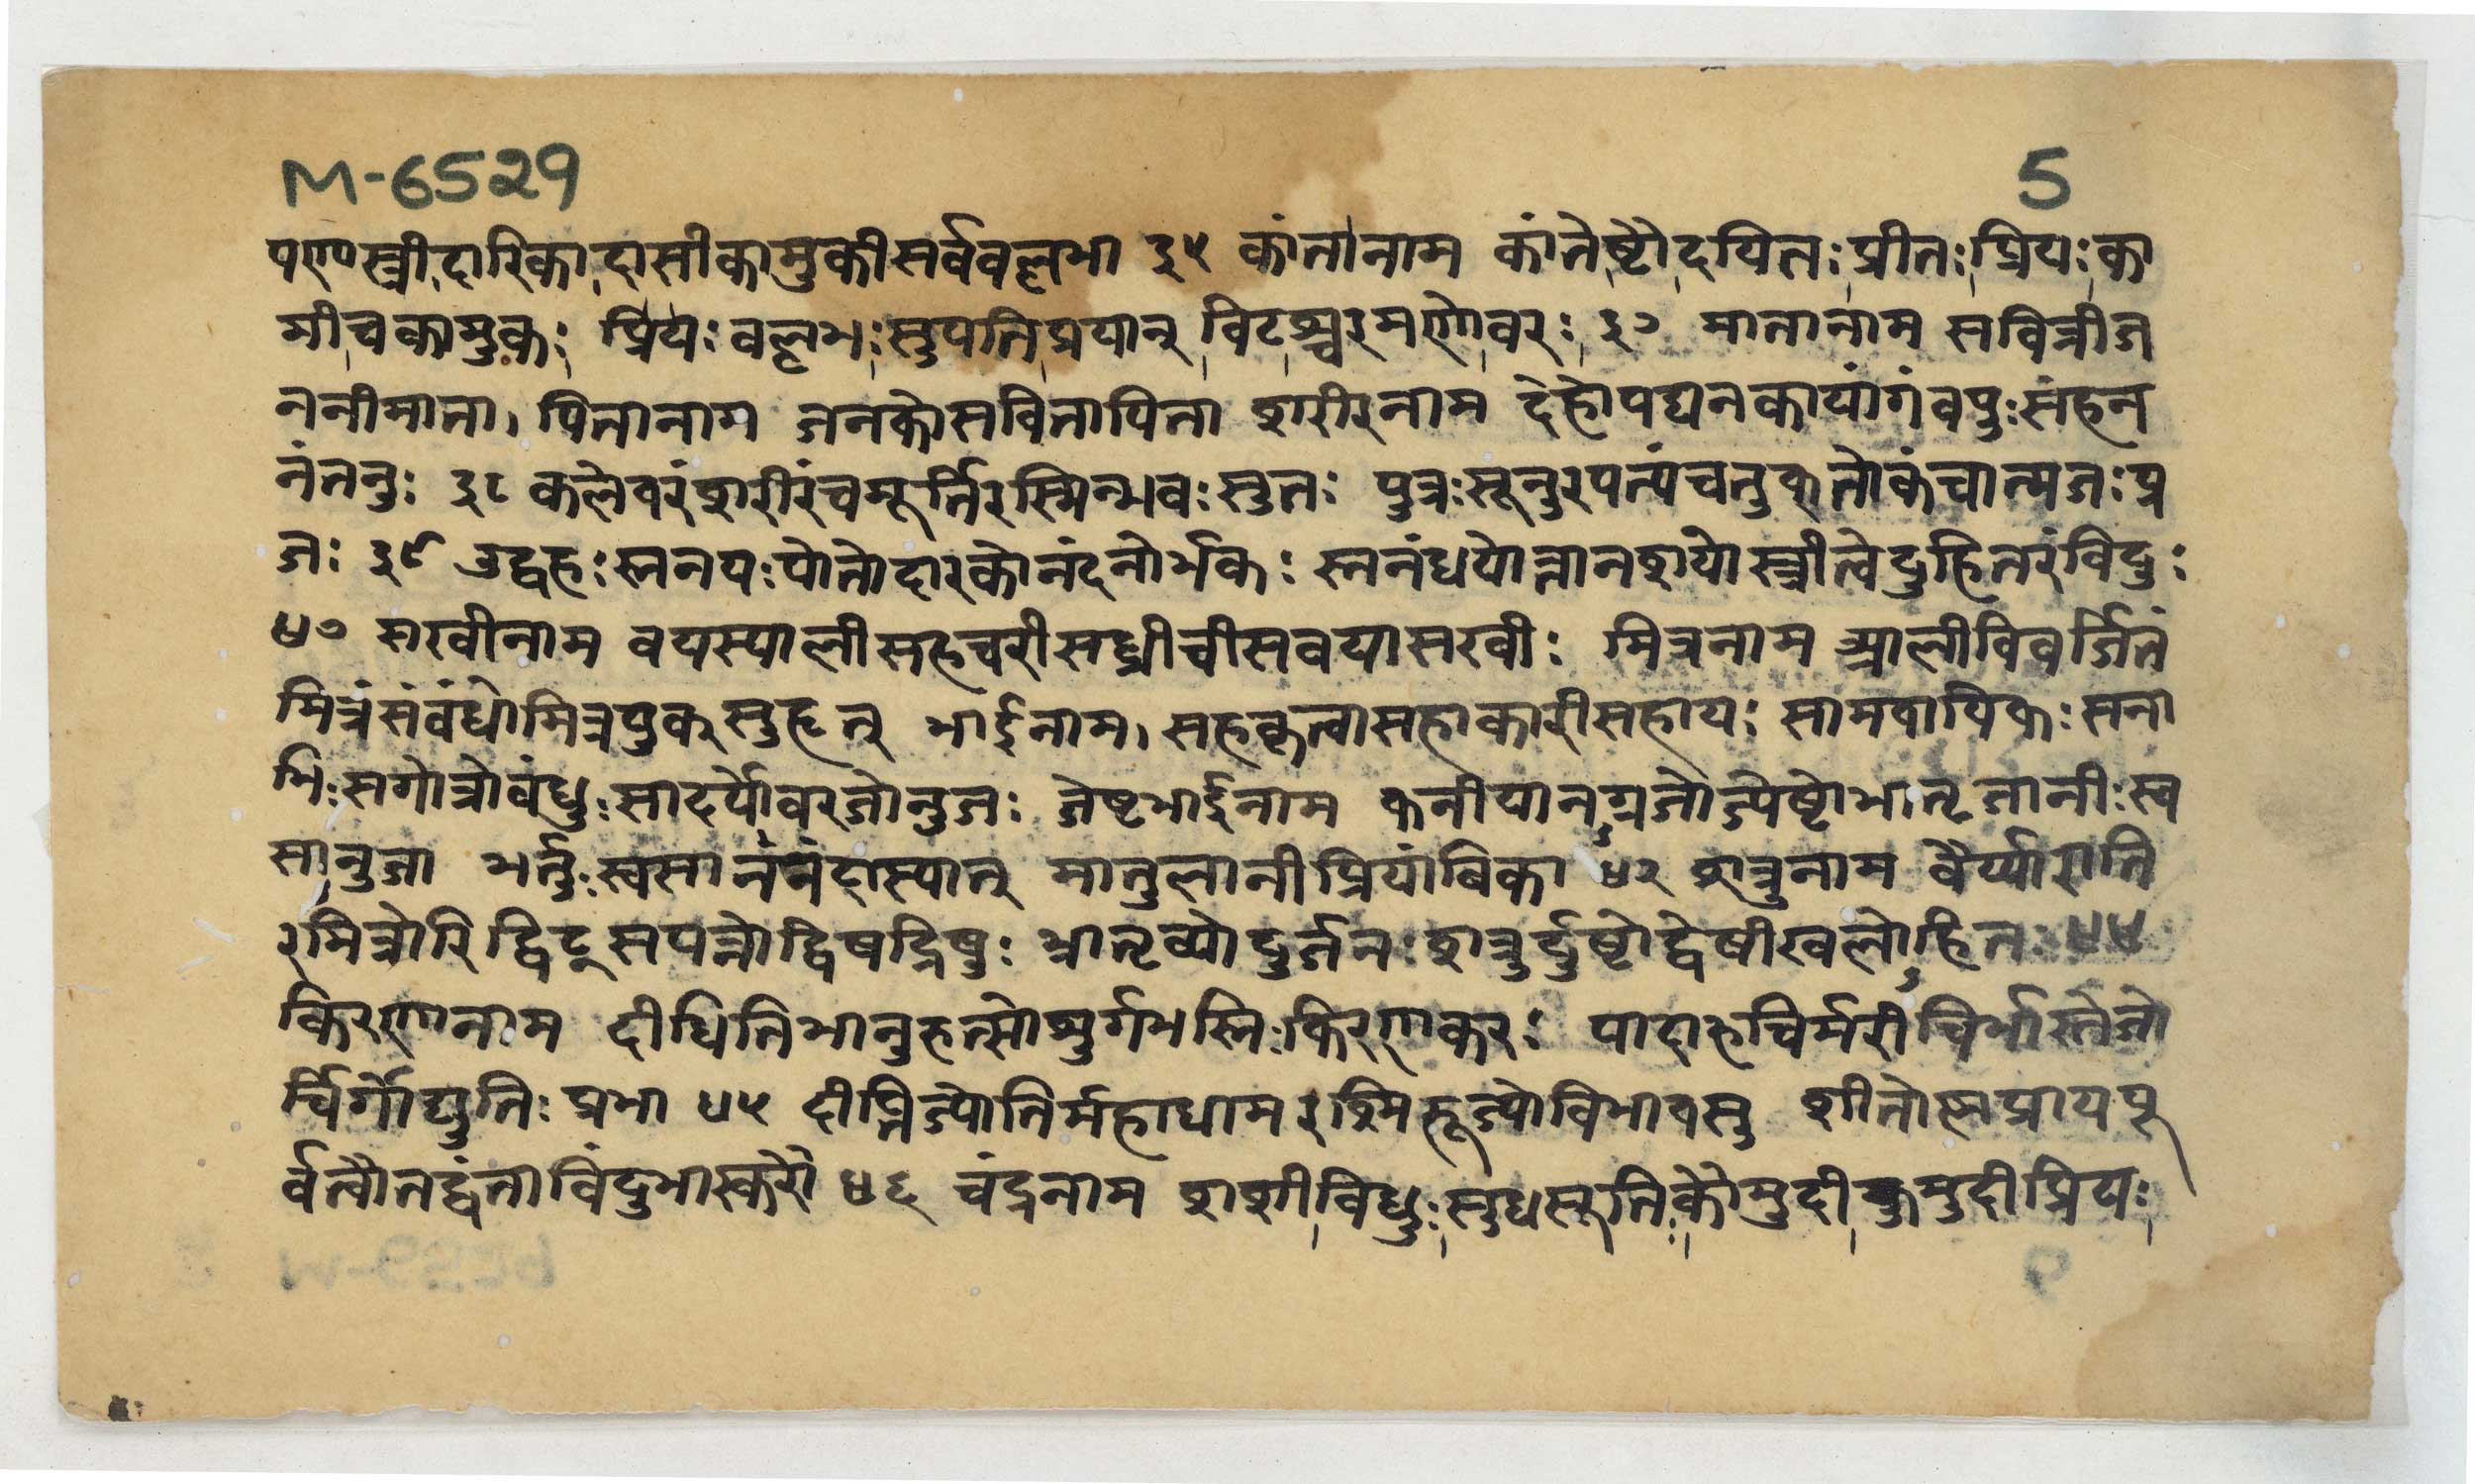 M-6529
5
पण्यस्त्रीदारिकादासीकामुकीसर्ववल्लभा ३५ कांतानाम कांतेष्टौदयितः प्रीतः प्रियः का
मीचकामुकः प्रियः वल्लभः सुपतिप्रयान् विटश्चरमणोवरः ३७ मातानाम सवित्रीज
ननीमाता। पितानाम जनकोसवितापिता शरीरनाम देहोपद्यनकायांगंवपुः संहन
नंतनुः ३८ कलेवरंशरीरंचमूर्तिरस्मिन्भवः सुतः पुत्रः सूनुरपत्यंचतुक्तोकंचात्मजः प्र
जः ३९ उद्वहः स्तनयः पोतोदारकोनंदनोर्भकः स्तनंधयोत्तानशयोस्त्रीत्वेदुहितरंविदुः
४० सखीनाम वयस्यालीसहचरीसध्रीचीसवयासखीः मित्रनाम आलीविवर्जितं
मित्रंसंवंधोमित्रयुक्सुहृत् भाईनाम। सहकृत्वासहाकारीसहायः सामवायिकः सना
भिः सगोत्रोवंधुः सादर्योवरजोनुजः जेष्टभाईनाम कनीयानग्रजोज्येष्टोभातृजानीः स्व
सानुजा भर्तुः स्वसाननंदास्यात् मातुलानीप्रियांबिका ४३ शत्रुनाम वैर्य्याराति
रमित्रोरिद्विट्सपत्नोद्विषद्रिपुः भ्रातृव्योदुर्जनः शत्रुर्दुष्टोद्वेषीखलोहितः ४४
किरणनाम दीधितिभानुरुत्स्रोंशुर्गभस्तिः किरणकरः पादारुचिर्मरीचिर्भास्तेजो
र्चिर्गोद्युतिः प्रभा ४५ दीप्तिज्योतिर्महाधामरश्मिरूज्योविभावसु शीतोष्णप्रायपू
र्वत्वौतद्वंताविंदुभास्करौ ४६ चंद्रनाम शशीविधुः सुधसूतिः कौमुदीकुमुदीप्रियः